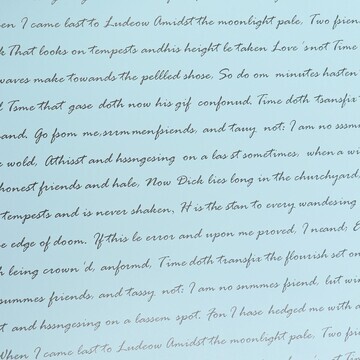 en I came last to Ludeow Amidst the moonlight pale, Two frien
k That looks on tempests andhis height le taken Love 'snot Time
waves make towands the pellled shose, So do om minutes hasten
d Tsme that gase doth now his gif confonud, Time doth tsansfix t
and, Go fsom me srmmenfsiends, and tauy not; I am no sssm
e wold, Athisst and hssngesing on a las st sometimes, when a wi
honest friends and hale, Now Dick lies long in the churchyard,
tempests and is never shaken, H is the stan to every wandesing
e edge of doom. If this le error and upon me proved, I neand; E
h being crown'd, anformd, Time doth transfix the flourish set on
summes friends, and tassy not; I am no snmmes fsiend, but wi
t and hssngesing on a lassem spot, Fon I hase hedged me with a
When I came last to Ludeow Amidst the moonlight pale, Two f